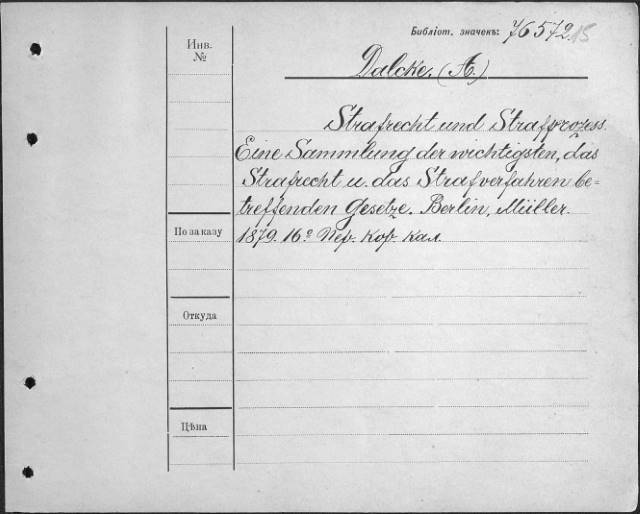 Библіот. значекъ: 76572 15
Инв.
№
Dalcke. (A.)
Strafrecht und Strafprozess.
Eine Sammlung der wichtigsten, das
Strafrecht u. das Strafverfahren be-
treffenden Gesetze. Berlin, Müller.
По заказу
1879. 16º Пер. Кор. кал.
Откуда
Цѣна